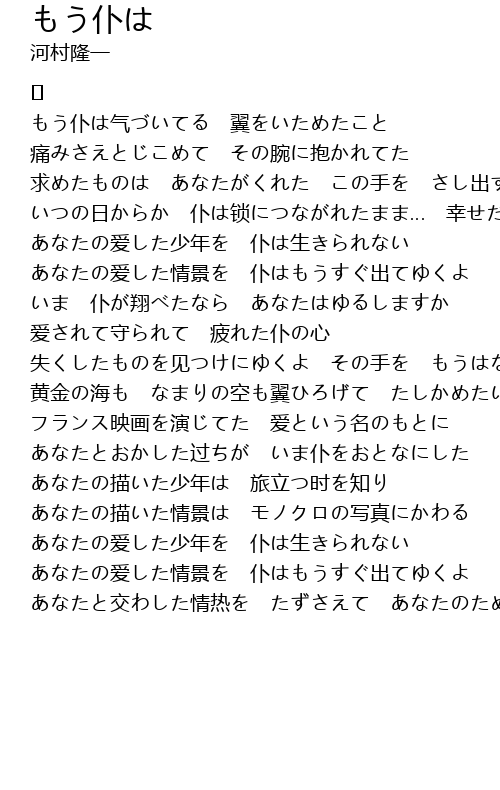 もう仆は
河村隆一
もう仆は气づいてる　翼をいためたこと
痛みさえとじこめて　その腕に抱かれてた
求めたものは　あなたがくれた　この手を　さし出す
いつの日からか　仆は锁につながれたまま...　幸せた
あなたの爱した少年を　仆は生きられない
あなたの爱した情景を　仆はもうすぐ出てゆくよ
いま　仆が翔べたなら　あなたはゆるしますか
爱されて守られて　疲れた仆の心
失くしたものを见つけにゆくよ　その手を　もうはな
黄金の海も　なまりの空も翼ひろげて　たしかめたい
フランス映画を演じてた　爱という名のもとに
あなたとおかした过ちが　いま仆をおとなにした
あなたの描いた少年は　旅立つ时を知り
あなたの描いた情景は　モノクロの写真にかわる
あなたの爱した少年を　仆は生きられない
あなたの爱した情景を　仆はもうすぐ出てゆくよ
あなたと交わした情热を　たずさえて　あなたのため